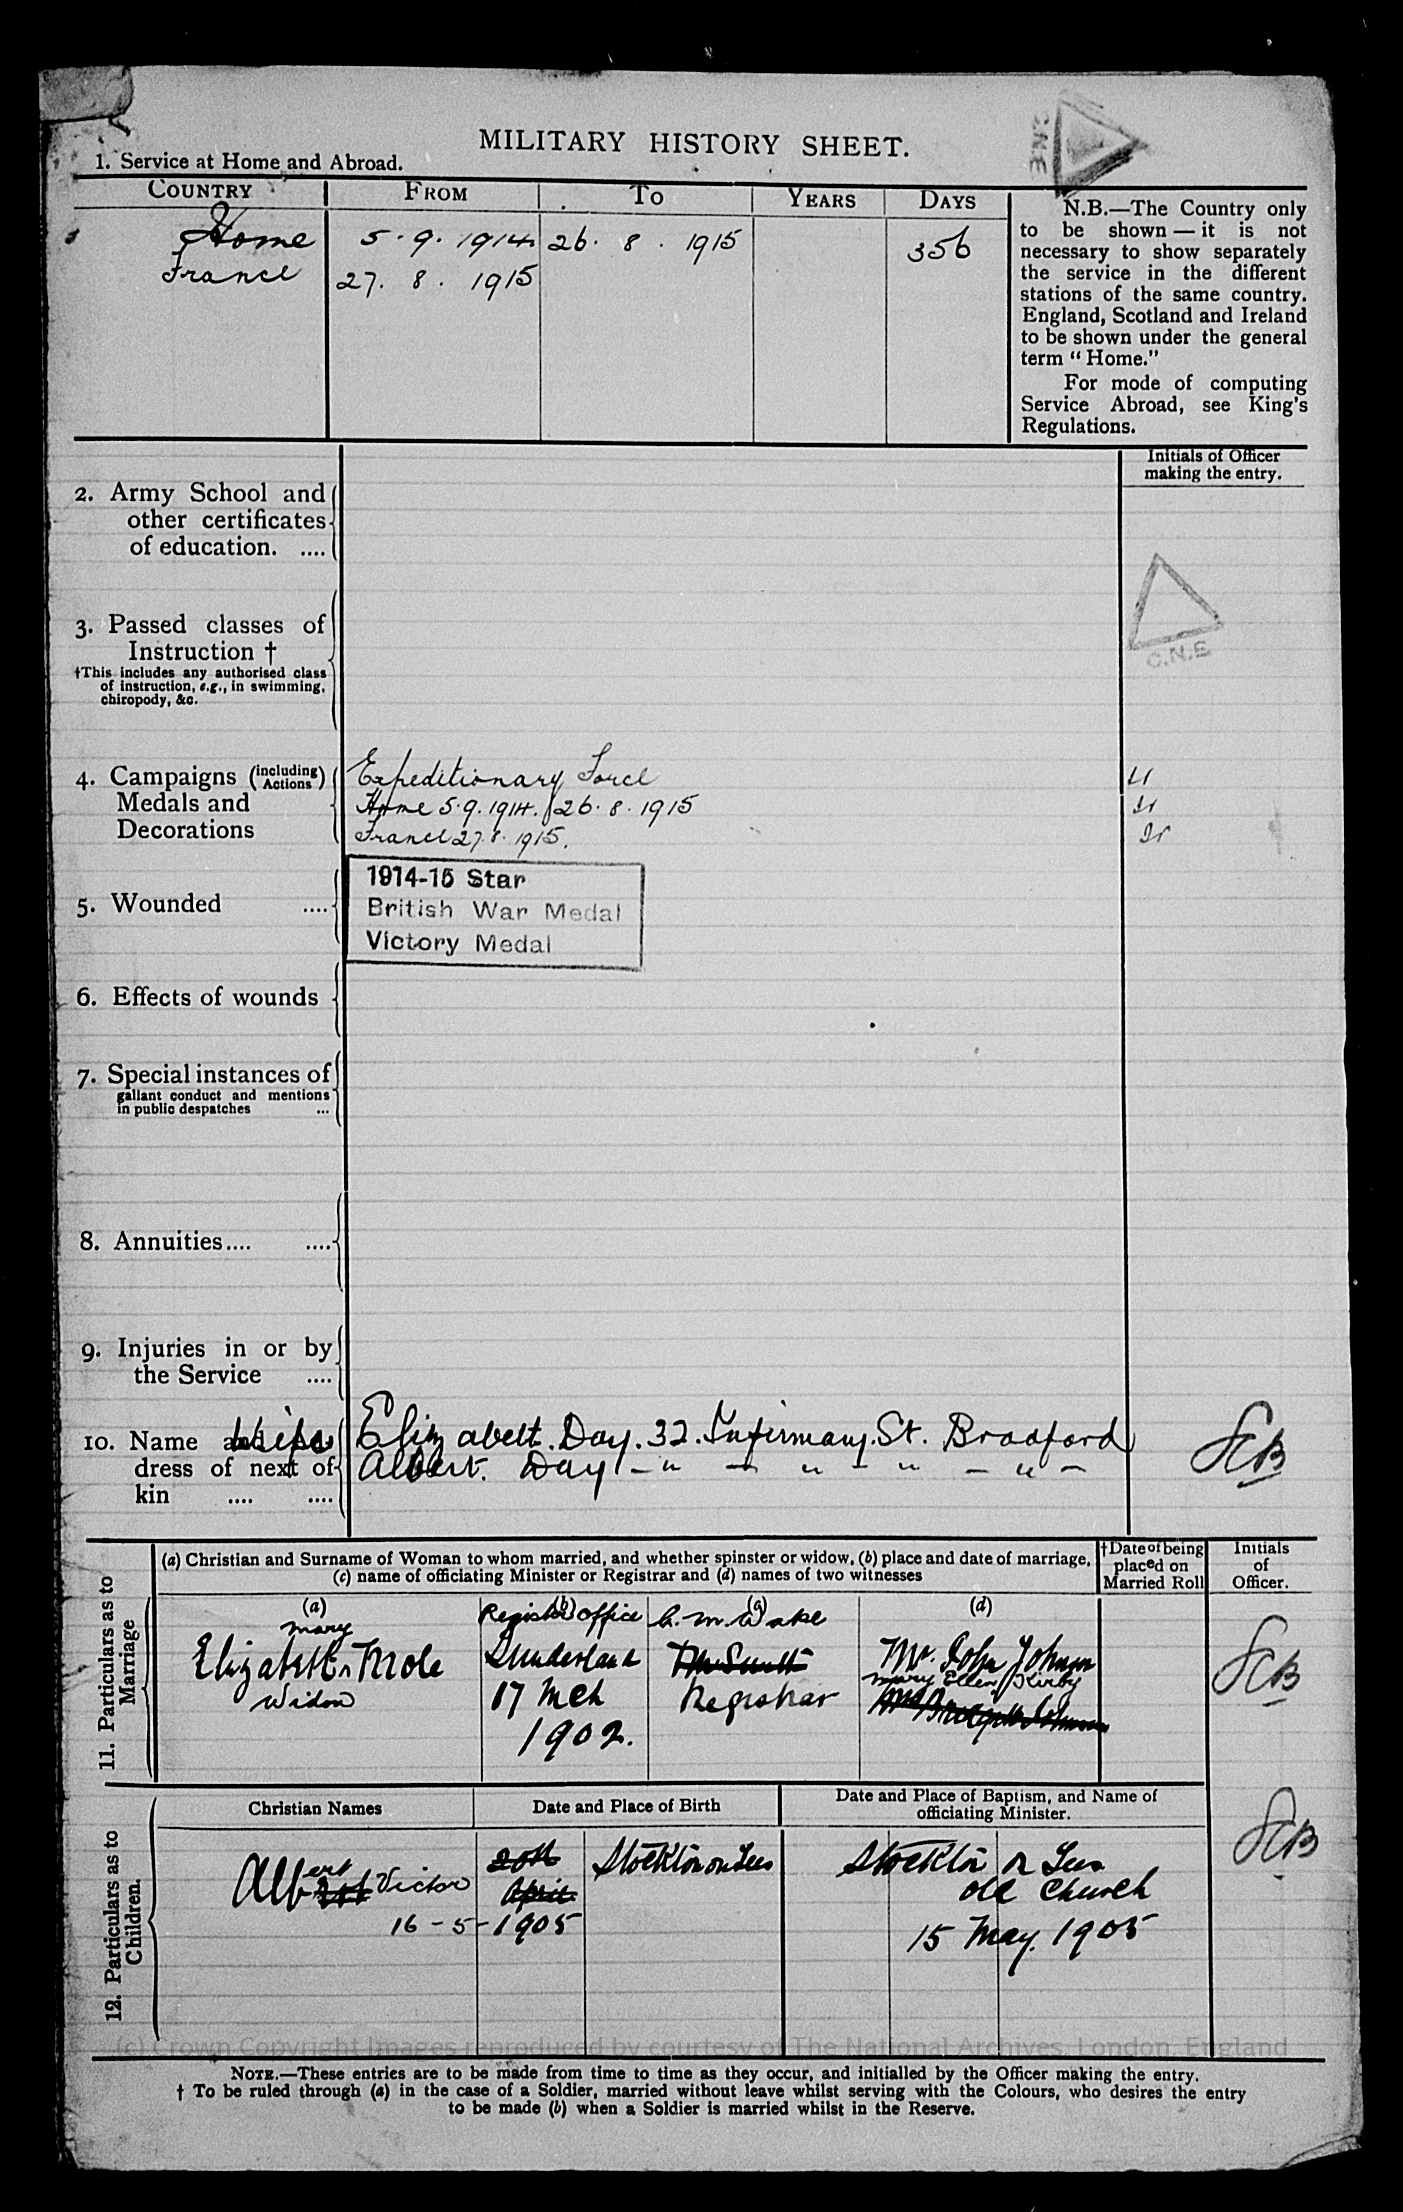 MILITARY HISTORY SHEET.
C.N.E
1. Service at Home and Abroad.
COUNTRY FROM TO YEARS DAYS
Home 5.9.1914 26.8.1915 356
France 27.8.1915
N.B.—The Country only
to be shown — it is not
necessary to show separately
the service in the different
stations of the same country.
England, Scotland and Ireland
to be shown under the general
term “Home.”
For mode of computing
Service Abroad, see King's
Regulations.
Initials of Officer
making the entry.
2. Army School and
other certificates
of education. ....
C.N.E
3. Passed classes of
Instruction †
†This includes any authorised class
of instruction, e.g., in swimming,
chiropody, &c.
4. Campaigns (including Actions)
Medals and
Decorations
Expeditionary Force
Home 5.9.1914. 26.8.1915
France 27.8.1915.
1914-15 Star
British War Medal
Victory Medal
5. Wounded ....
6. Effects of wounds
7. Special instances of
gallant conduct and mentions
in public despatches ...
8. Annuities.... ....
9. Injuries in or by
the Service ....
10. Name and ad-
dress of next of
kin .... ....
Wife
Elizabeth. Day. 32. Infirmary. St. Bradford
Albert. Day - " - " - " - " -
11. Particulars as to
Marriage
(a) Christian and Surname of Woman to whom married, and whether spinster or widow, (b) place and date of marriage,
(c) name of officiating Minister or Registrar and (d) names of two witnesses
†Date of being
placed on
Married Roll
Initials
of
Officer.
(a) (b) (c) (d)
Mary
Elizabeth Mole
Widow
Register office
Sunderland
17 Mch
1902.
C. M. Wake
Registrar
Mr. John Johnson
Mary Ellen Kirby
12. Particulars as to
Children.
Christian Names
Date and Place of Birth
Date and Place of Baptism, and Name of
officiating Minister.
Albert Victor
20th
April
16-5-1905
Stockton on Tees
Stockton on Tees
old Church
15 May. 1905
(c) Crown Copyright Images reproduced by courtesy of The National Archives, London, England
NOTE.—These entries are to be made from time to time as they occur, and initialled by the Officer making the entry.
† To be ruled through (a) in the case of a Soldier, married without leave whilst serving with the Colours, who desires the entry
to be made (b) when a Soldier is married whilst in the Reserve.